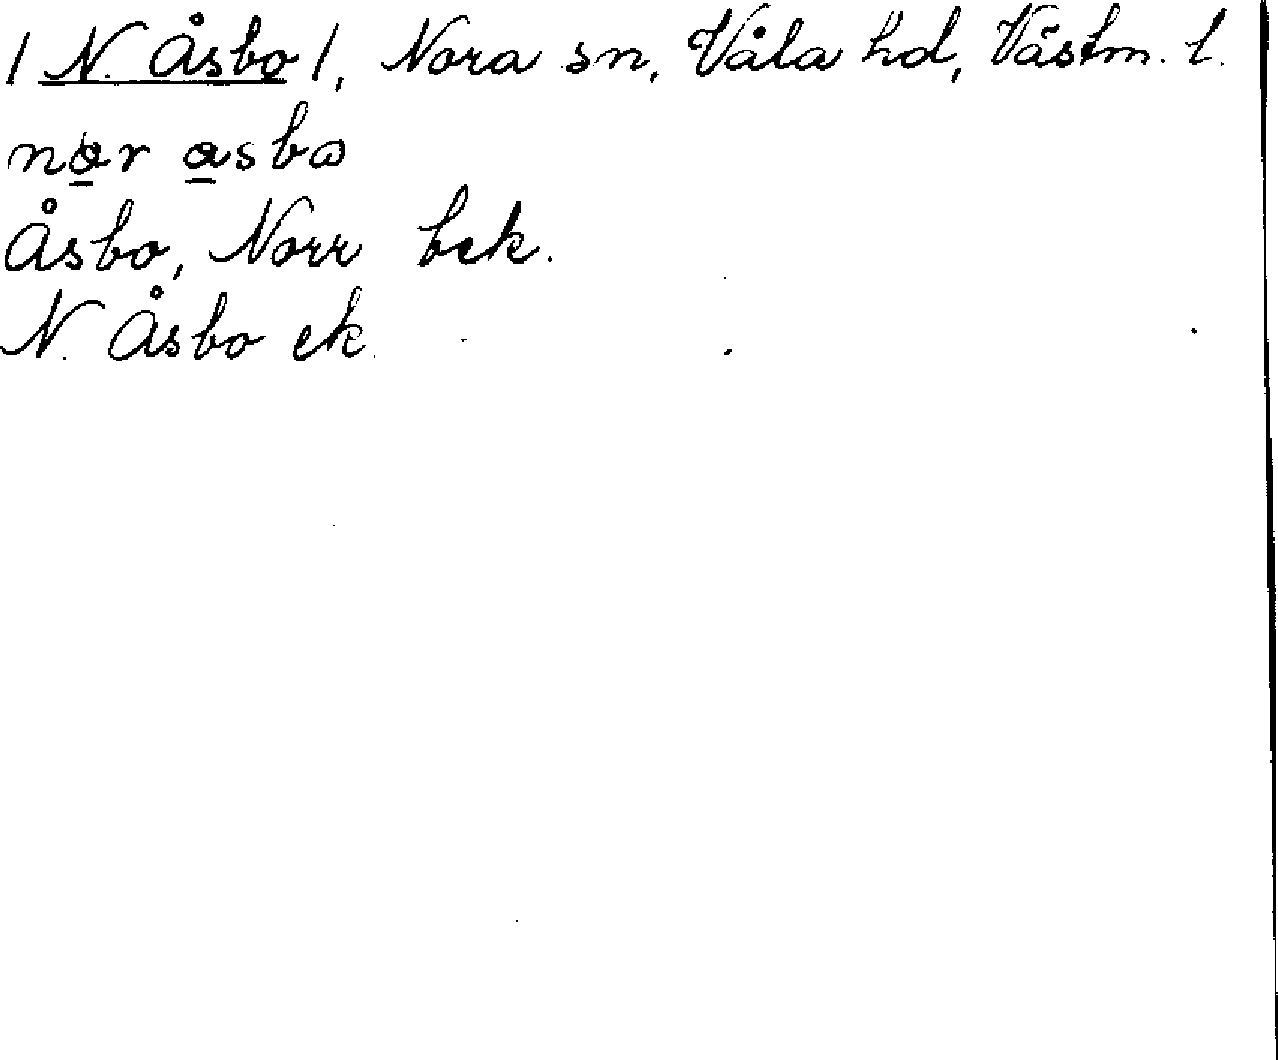 / N. Åsbo /, Nora sn, Våla hd, Västm. l.
nor åsbo
Åsbo, Norr bek.
N. Åsbo ek.